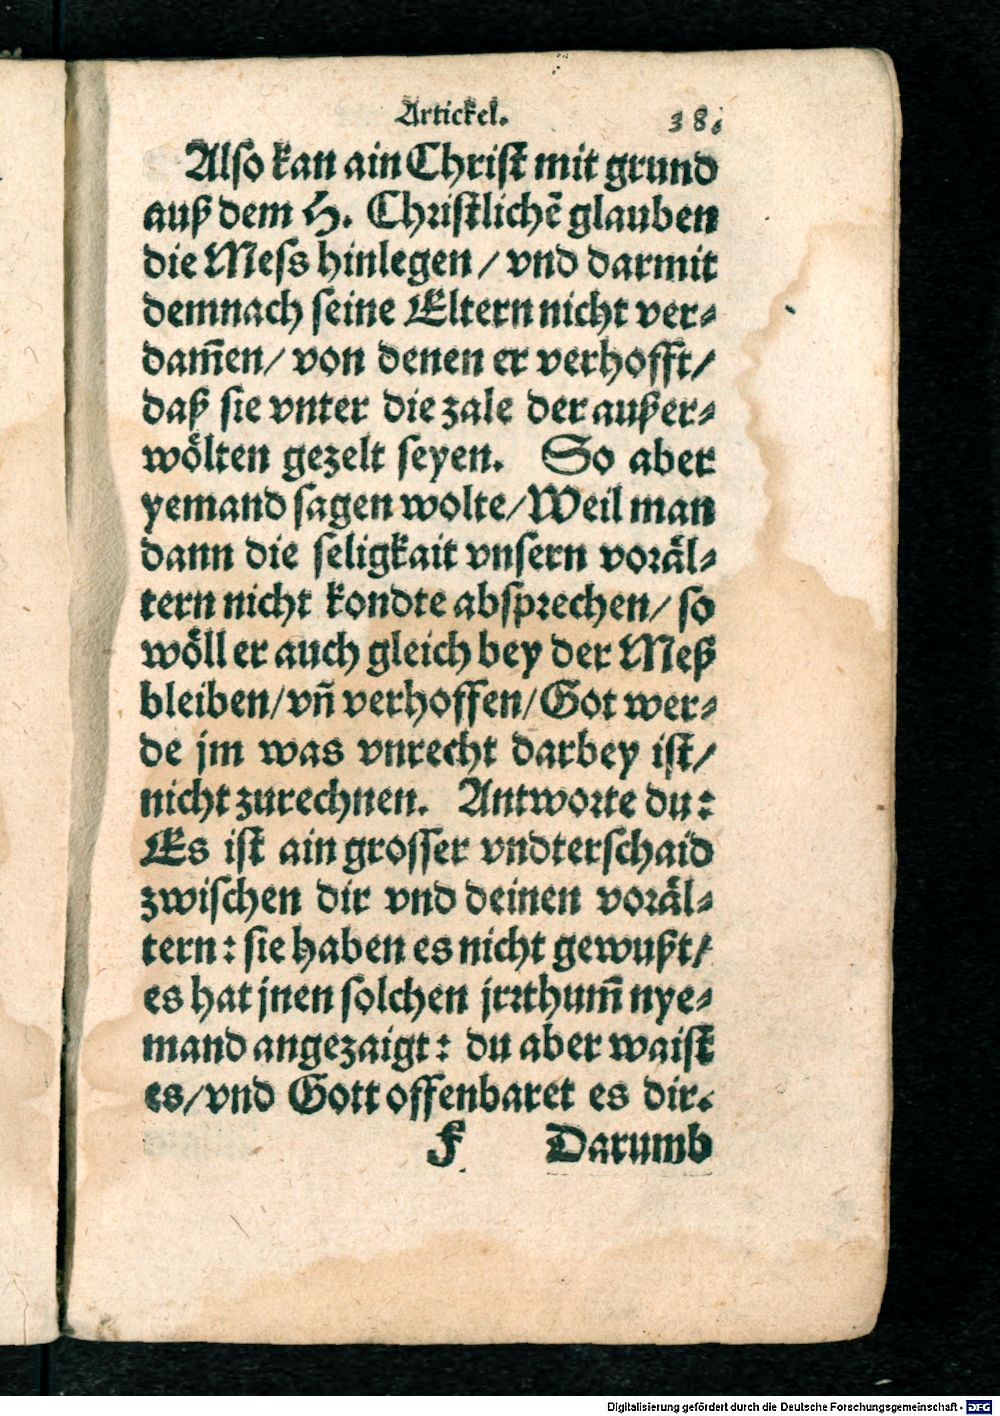 Artickel.
38.
Also kan ain Christ mit grund
auß dem H. Christlichē glauben
die Mess hinlegen / vnd darmit
demnach seine Eltern nicht ver⸗
dam̄en/ von denen er verhofft/
daß sie vnter die zale der außer⸗
woͤlten gezelt seyen. So aber
yemand sagen wolte/Weil man
dann die seligkait vnsern voraͤl⸗
tern nicht kondte absprechen/ so
woͤll er auch gleich bey der Meß
bleiben/vn̄ verhoffen/Got wer⸗
de jm was vnrecht darbey ist/
nicht zurechnen. Antworte du:
Es ist ain grosser vndterschaid
zwischen dir vnd deinen voraͤl⸗
tern: sie haben es nicht gewußt/
es hat jnen solchen jrrthum̄ nye⸗
mand angezaigt: du aber waist
es/vnd Gott offenbaret es dir.
f Darumb
Digitalisierung gefördert durch die Deutsche Forschungsgemeinschaft - DFG